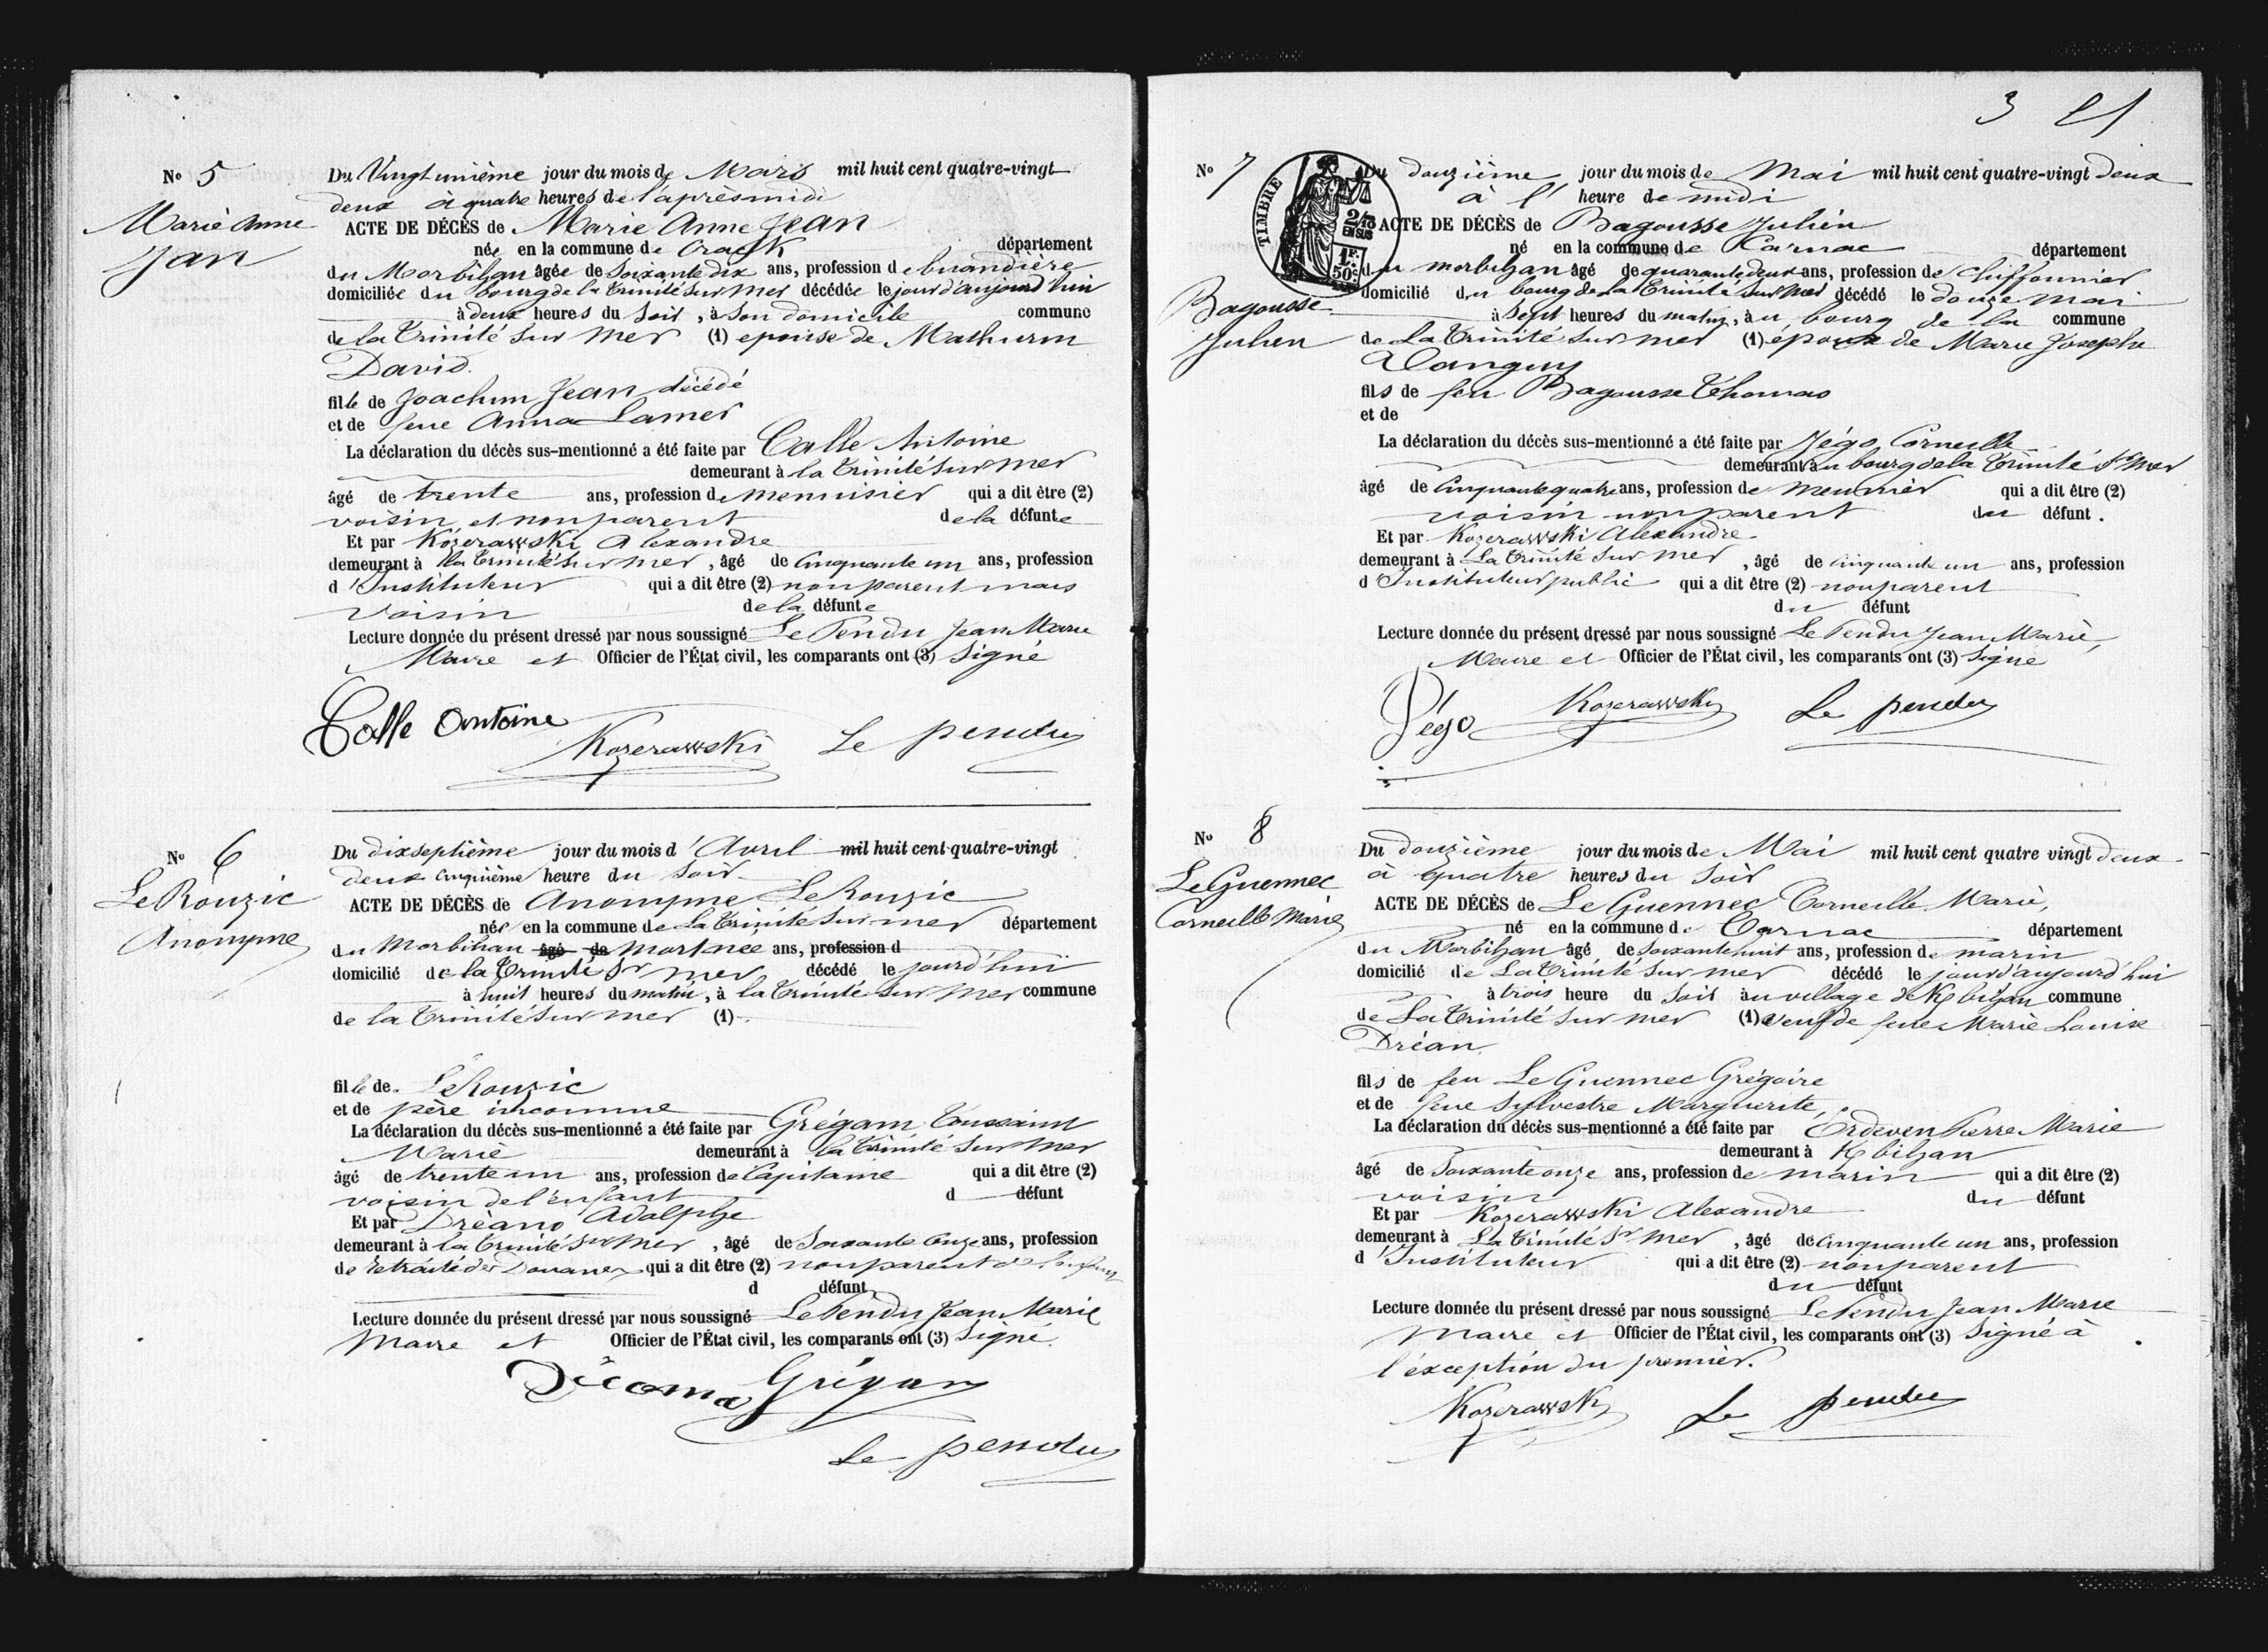 No 5
Marie Anne
Jan
Du Vingt unième jour du mois de Mars mil huit cent quatre-vingt
deux à quatre heures de l'après midi
ACTE DE DÉCÈS de Marie Anne Jean
née en la commune de Crack département
du Morbihan âgée de Soixante dix ans, profession de buandière
domiciliée du bourg de la Trinité sur Mer décédée le jour d'aujourd'hui
à deux heures du soir, à son domicile commune
de la Trinité sur Mer (1) epouse de Mathurin
David.
fille de Joachim Jean décédé
et de feue Anna Lamer
La déclaration du décès sus-mentionné a été faite par Calle Antoine
demeurant à la Trinité sur mer
âgé de trente ans, profession de menuisier qui a dit être (2)
voisin et non parent de la défunte
Et par Kozerawski Alexandre
demeurant à la Trinité sur mer, âgé de cinquante un ans, profession
d'Instituteur qui a dit être (2) non parent mais
voisin de la défunte
Lecture donnée du présent dressé par nous soussigné Le Pendu Jean Marie
Maire et Officier de l'État civil, les comparants ont (3) signé
Calle Antoine
Kozerawski Le pendu
No 6
Le Rouzic
Anonyme
Du dix septième jour du mois d'Avril mil huit cent quatre-vingt
deux cinquième heure du soir
ACTE DE DÉCÈS de Anonyme Le Rouzic
née en la commune de La Trinité sur mer département
du Morbihan âgé de mort née ans, profession d
domicilié de la Trinité Sr mer décédé le jourd'hui
à huit heures du matin, à la Trinité sur Mer commune
de la Trinité sur mer (1)
fille de Le Rouzic
et de père inconnue
La déclaration du décès sus-mentionné a été faite par Grégam Toussaint
Marie demeurant à la Trinité sur mer
âgé de trente un ans, profession de Capitaine qui a dit être (2)
voisin de l'enfant d défunt
Et par Dréano Adolphe
demeurant à la Trinité Sur Mer, âgé de Soixante onze ans, profession
de retraité des Douanes qui a dit être (2) non parent de l'enfant
d défunt
Lecture donnée du présent dressé par nous soussigné Le Pendu Jean Marie
Maire et Officier de l'État civil, les comparants ont (3) signé.
Grégam
Le pendu
3
No 7
Bagousse
Julien
TIMBRE
2/10
EN SUS
1F.
50c
Du douzième jour du mois de Mai mil huit cent quatre-vingt deux
à l' heure de midi
ACTE DE DÉCÈS de Bagousse Julien
né en la commune de Carnac département
du morbihan âgé de quarante deux ans, profession de chiffonnier
domicilié du bourg de la Trinité sur Mer décédé le douze mai
à sept heures du matin, au bourg de la commune
de La Trinité sur mer (1) époux de Marie Josèphe
Tanguy
fils de feu Bagousse Thomas
et de
La déclaration du décès sus-mentionné a été faite par Jégo Corneille
demeurant au bourg de la Trinité Sr Mer
âgé de Cinquante quatre ans, profession de meunier qui a dit être (2)
voisin non parent du défunt.
Et par Kozerawski Alexandre
demeurant à La Trinité sur mer, âgé de cinquante un ans, profession
d'Instituteur public qui a dit être (2) non parent
du défunt
Lecture donnée du présent dressé par nous soussigné Le Pendu Jean Marie,
Maire et Officier de l'État civil, les comparants ont (3) signé
Jégo Kozerawski Le pendu
No 8
Le Guennec
Corneille Marie
Du douzième jour du mois de Mai mil huit cent quatre vingt deux
à quatre heures du soir
ACTE DE DÉCÈS de Le Guennec Corneille Marie,
né en la commune de Carnac département
du Morbihan âgé de soixante huit ans, profession de marin
domicilié de La Trinité sur mer décédé le jour d'aujourd'hui
à trois heure du soir au village de K/bihan commune
de La Trinité sur mer (1) veuf de feue Marie Louise
Dréan
fils de feu Le Guennec Grégoire
et de feue Sylvestre Marguerite,
La déclaration du décès sus-mentionné a été faite par Erdeven Pierre Marie
demeurant à K/bihan
âgé de Soixante onze ans, profession de marin qui a dit être (2)
voisin du défunt
Et par Kozerawski Alexandre
demeurant à La Trinité Sr Mer, âgé de cinquante un ans, profession
d'Instituteur qui a dit être (2) non parent
du défunt
Lecture donnée du présent dressé par nous soussigné Le Pendu Jean Marie
Maire et Officier de l'État civil, les comparants ont (3) signé à
l'exception du premier.
Kozerawski Le pendu